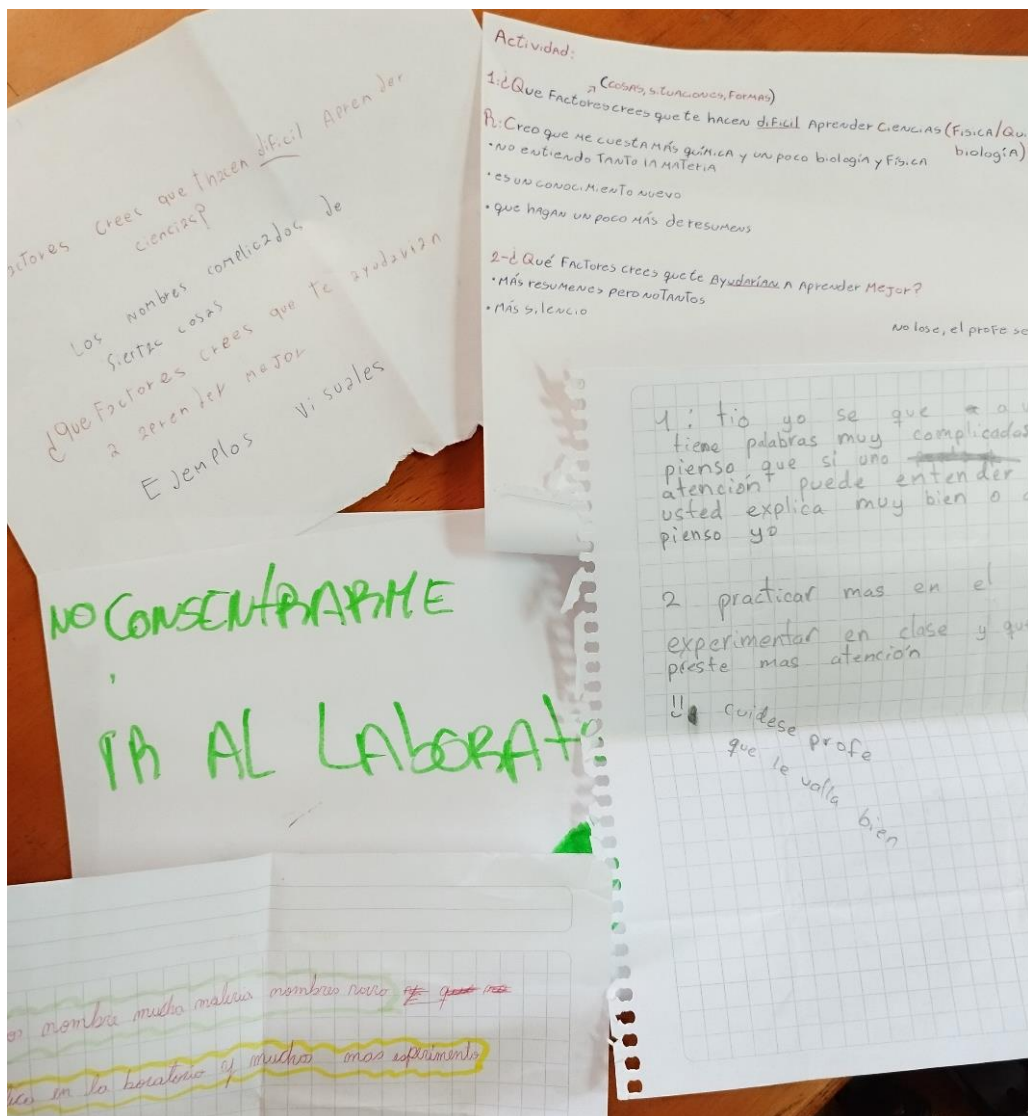 actores crees que thacen dificil Aprender
cienciasP
Los nombres complicados de
siertas cosas
¿Que Factores crees que te ayudarian
a aprender mejor
EJemplos Visuales
Actividad:
(cosas, situaciones, Formas)
1:¿Que Factores crees que te hacen diFicil Aprender Ciencias (Fisica/Qui
biología)
R:Creo que me cuesta más química y un poco biología y Física
•No entiendo tanto la materia
•es un conocimiento nuevo
•que hagan un poco más de resumens
2-¿Qué Factores crees que te Ayudarían a Aprender Mejor?
•Más resumenes pero no tantos
•Más silencio
No lose, el profe se
1: tio yo se que a
tiene palabras muy complicadas
pienso que si uno
atención puede entender
usted explica muy bien o
pienso yo
2 practicar mas en el
experimentar en clase y que
preste mas atención
!! cuidese profe
que le valla
bien
NO CONSENtRARME
IR AL LAboRAto
nombre mucha materia nombres raro
en la boratorio y muchos mas esperimento